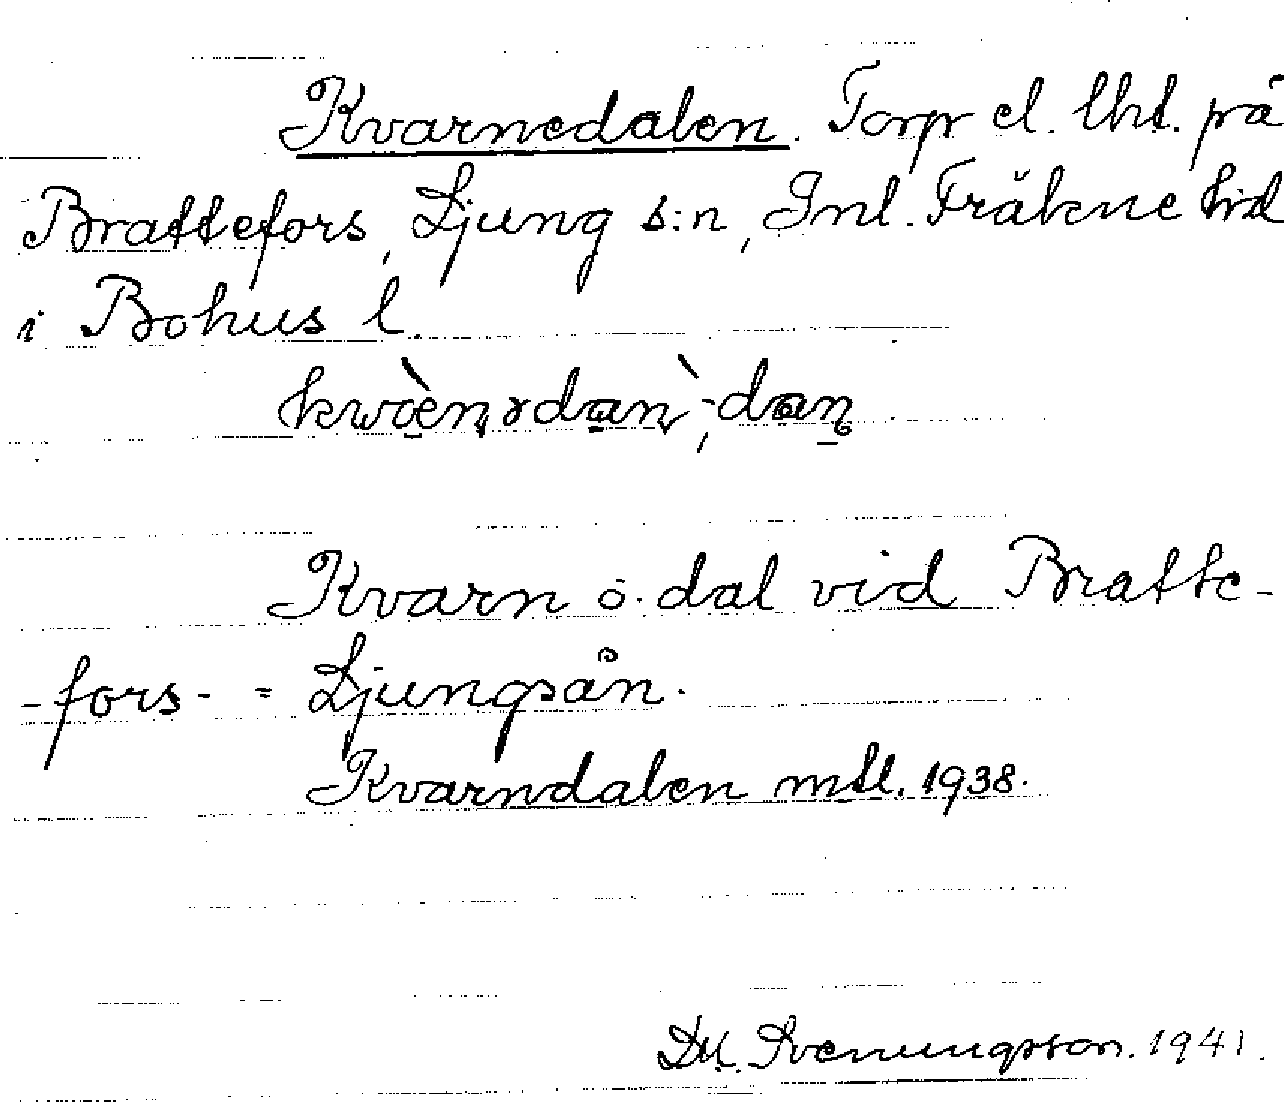 Kvarnedalen. Torp el. lht. på
Brattefors, Ljung s:n, Inl. Fräkne hd
i Bohus l.
Kvarn o. dal vid Bratte-
-fors- = Ljungsån.
Kvarndalen mtl. 1938.
Svenungsson. 1941.